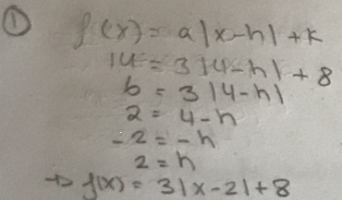 ① f(x) = a|x-h| + k
14 = 3|4-h| + 8
6 = 3|4-h|
2 = 4-h
-2 = -h
2 = h
→ f(x) = 3|x-2|+8